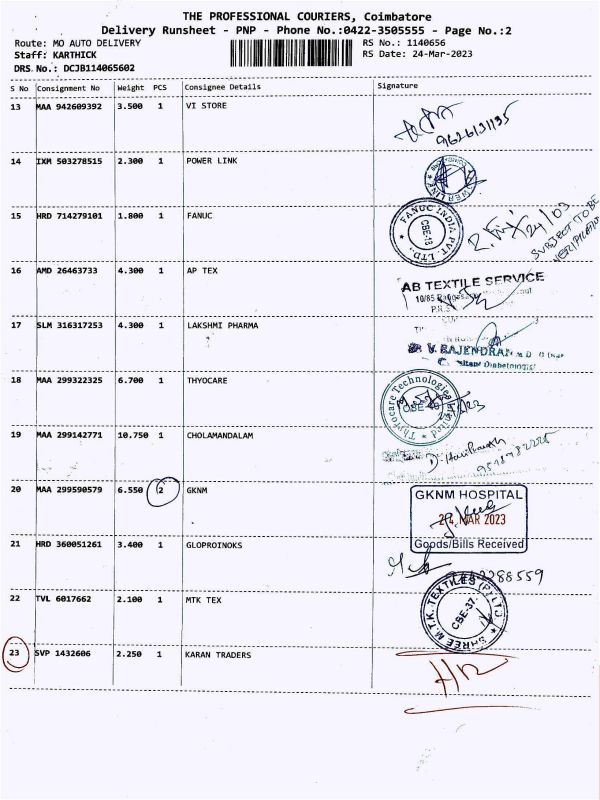 THE PROFESSIONAL COURIERS, Coimbatore
Delivery Runsheet - PNP - Phone No.:0422-3505555 - Page No.:2
Route: MO AUTO DELIVERY
RS No.: 1140656
Staff: KARTHICK
RS Date: 24-Mar-2023
DRS No.: DCJB114065602
S No Consignment No Weight PCS Consignee Details Signature
13 MAA 942609392 3.500 1 VI STORE
9626131135
14 IXM 503278515 2.300 1 POWER LINK
POWER LINK
15 HRD 714279101 1.800 1 FANUC
FANUC INDIA PVT. LTD.,
CBE-18
24/03
SUBJECT TO BE
VERIFICATION
16 AMD 26463733 4.300 1 AP TEX
AB TEXTILE SERVICE
10/85
17 SLM 316317253 4.300 1 LAKSHMI PHARMA
V. RAJENDRAN
Diabetologist
18 MAA 299322325 6.700 1 THYOCARE
Thyrocare Technologies Limited
CBE
19 MAA 299142771 10.750 1 CHOLAMANDALAM
20 MAA 299590579 6.550 2 GKNM
GKNM HOSPITAL
24 MAR 2023
Goods/Bills Received
21 HRD 360051261 3.400 1 GLOPROINOKS
22 TVL 6017662 2.100 1 MTK TEX
SHREE M.T.K. TEXTILES (P) LTD
CBE-37.
23 SVP 1432606 2.250 1 KARAN TRADERS